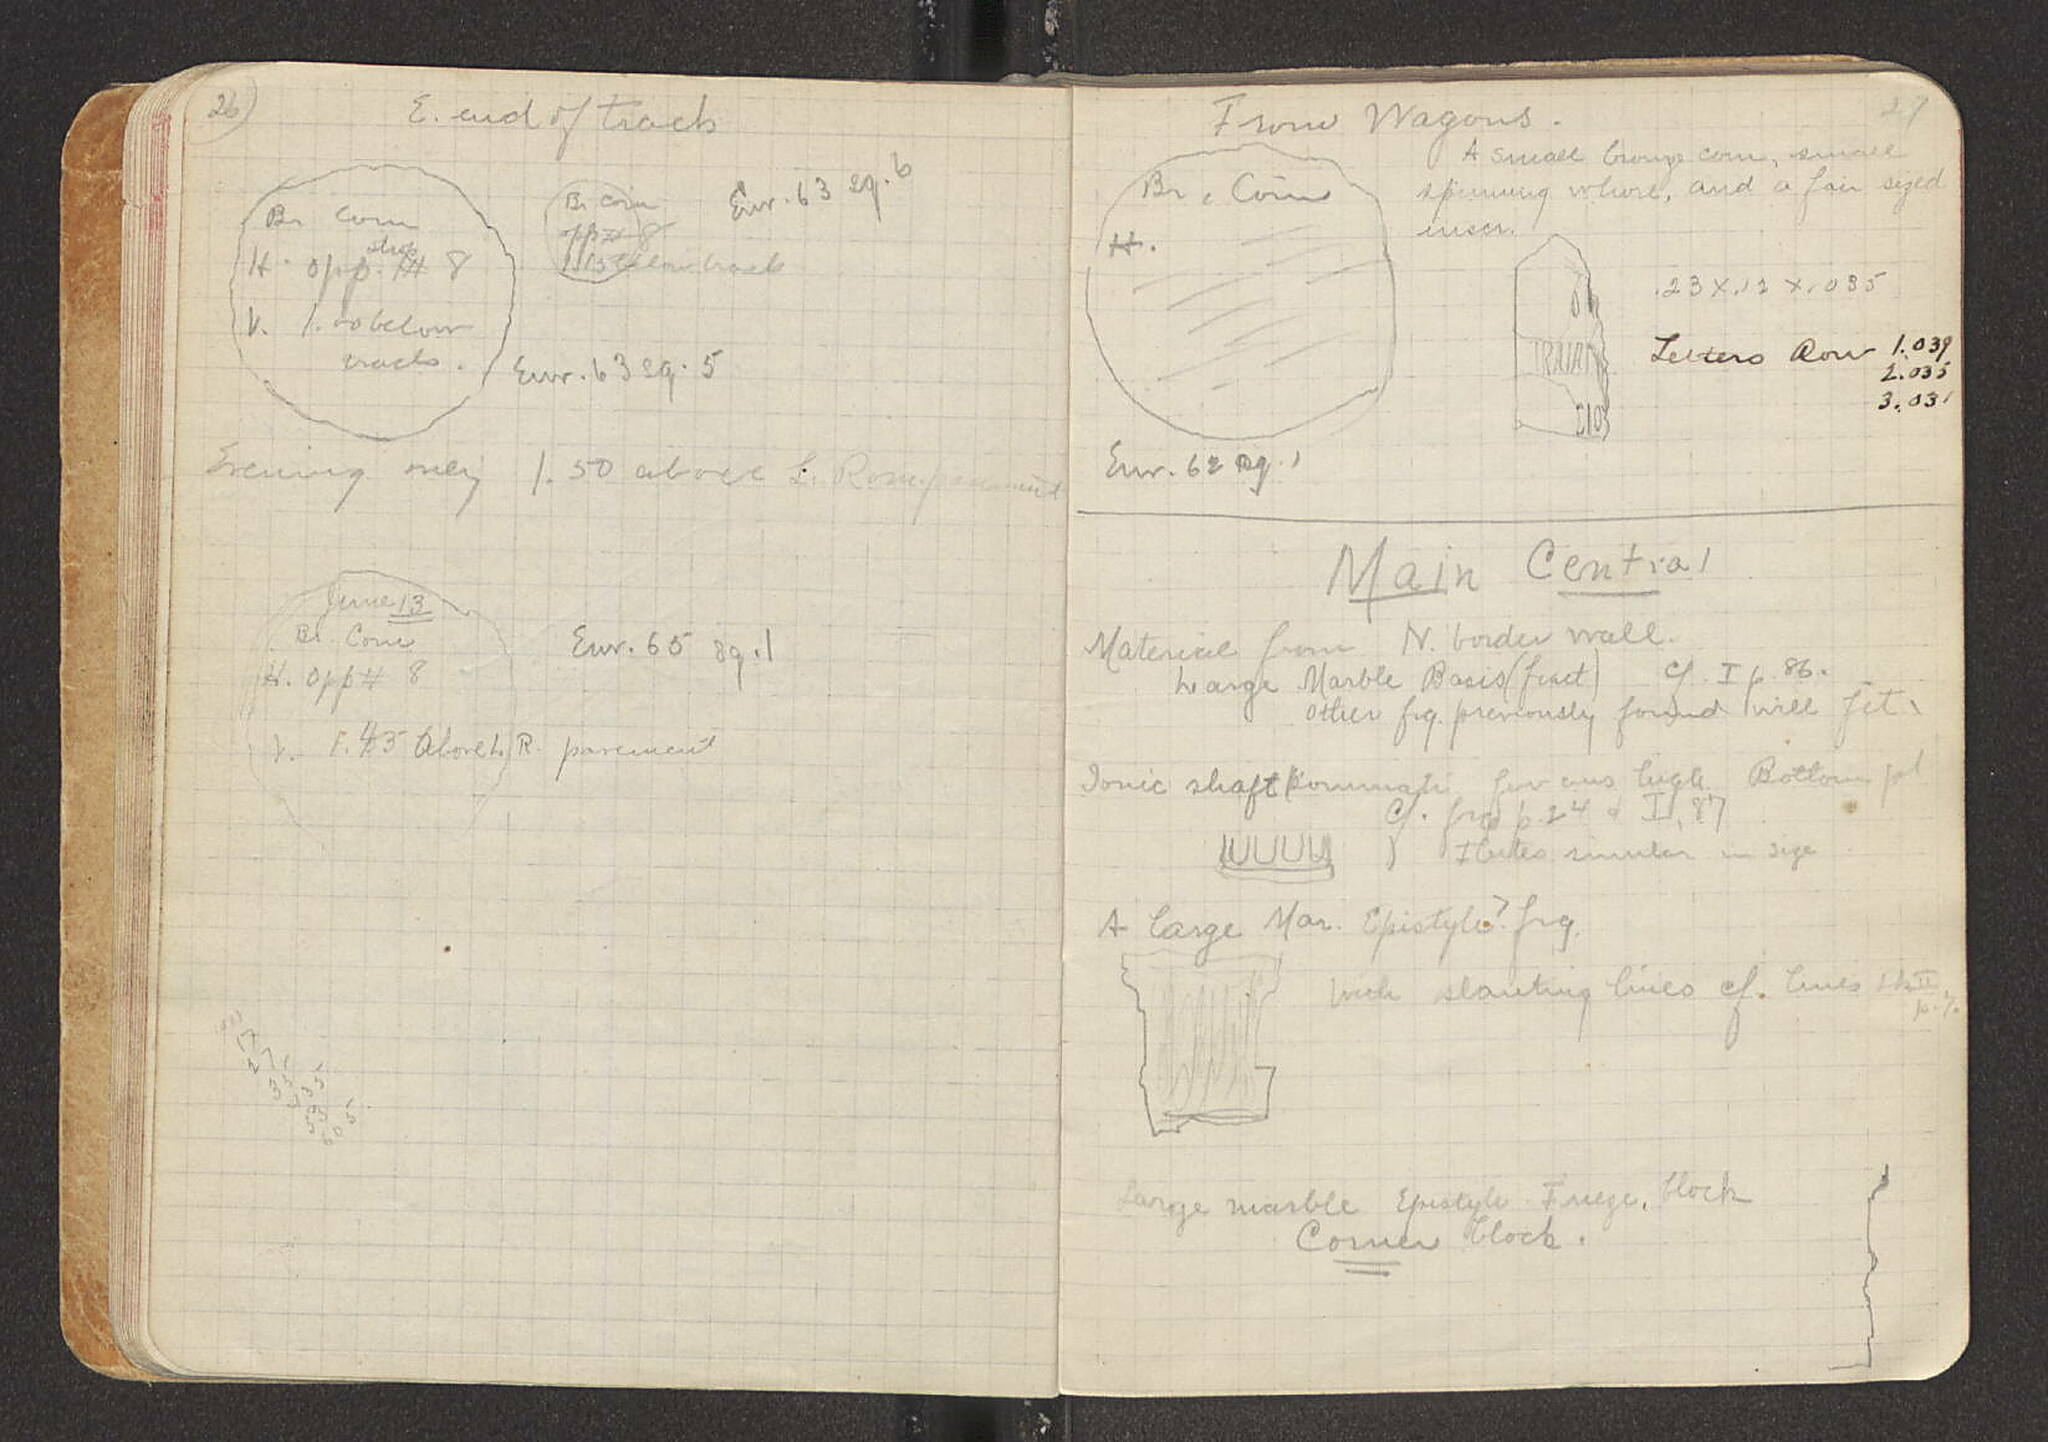 26)
E. end of track
Br Coin
H. opp. shop # 8
V. 1.00 below
track.
Eur. 63 sq. 5
Br Coin
opp # 8
below track
Eur. 63 sq. 6
Evening only 1.50 above L. Rom. pavement
June 13
Br. Coin
H. opp # 8
V. 1.45 Above L. R. pavement
Eur. 65 sq. 1
27
From Wagons.
Br. Coin
H.
Eur. 62 sq. 1
A small bronze coin, small
spinning whorl, and a fair sized
inscr.
TRAIAN
.23 x .12 x .085
Letters Row 1. .039
2. .035
3. .031
Main Central
Material from N. border wall.
Large Marble Basis (fract) cf. I p. 86.
other frg. previously found will fit.
Ionic shaft high Bottom pt
Cf. frg p. 24 & I, 87
Flutes similar in size
A large Mar. Epistyle? frg.
with slanting lines cf. lines bk II
p.
Large marble Epistyle Frieze, block
Corner block.